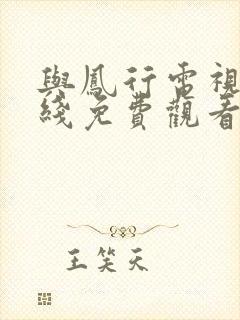 與鳳行電視
綫免費觀看
王笑天